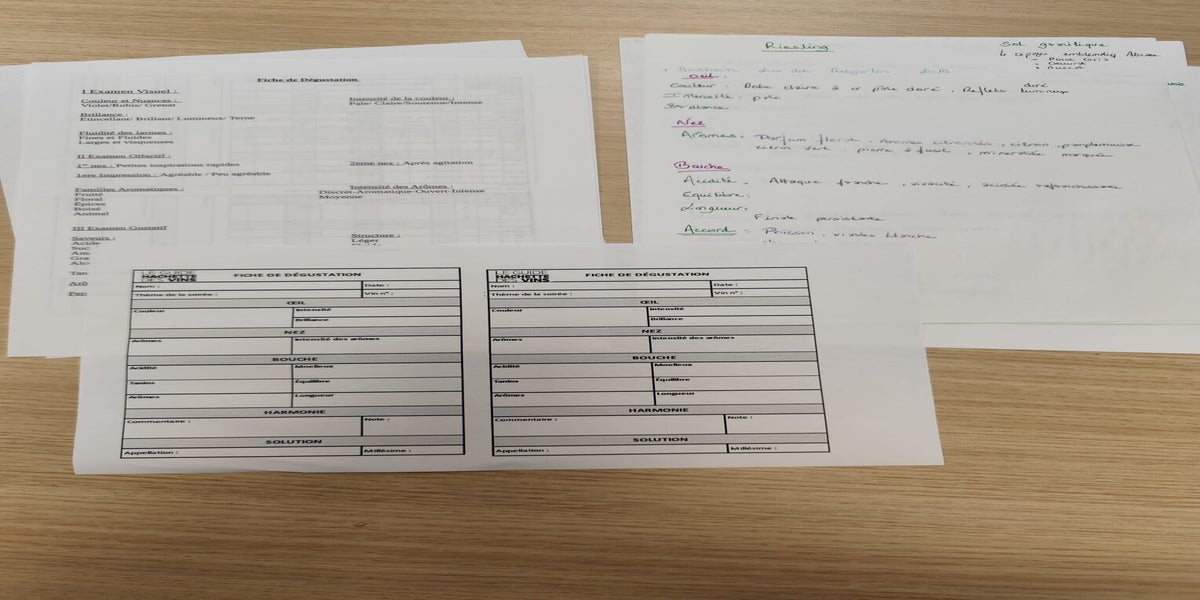 Fiche de Dégustation
I Examen Visuel :
Couleur et Nuances :
Violet/Rubis/ Grenat
Intensité de la couleur :
Pale/ Claire/Soutenue/Intense
Brillance :
Etincellant/ Brillant/ Lumineux/ Terne
Fluidité des larmes :
Fines et Fluides
Larges et visqueuses
II Examen Olfactif :
1er nez : Petites inspirations rapides
2eme nez : Après agitation
1ere Impression : Agréable / Peu agréable
Familles Aromatiques :
Fruité
Floral
Épices
Boisé
Animal
Intensité des Arômes :
Discret-Aromatique-Ouvert-Intense
Moyenne
III Examen Gustatif
Saveurs :
Acide
Suc
Am
Gra
Alc
Structure :
Léger
Tan
Arô
Per
Riesling
Sol granitique
4 cepages
Pinot Gris
Muscat
Oeil :
Couleur : Robe claire à or pâle doré. Reflets doré lumineux
Intensité : pâle
Brillance
Nez
Arômes. Parfum floral. Aromes citronnés, citron, pamplemousse
citron vert. pierre à fusil, minéralité marquée
Bouche
Acidité. Attaque franche, vivacité, acidité rafraichissante
Equilibre:
Longueur:
Finale persistante
Accord : Poisson, viandes blanche
LE GUIDE
HACHETTE
DES VINS
FICHE DE DÉGUSTATION
Nom :
Date :
Thème de la soirée :
Vin n° :
ŒIL
Couleur
Intensité
Brillance
NEZ
Arômes
Intensité des arômes
BOUCHE
Acidité
Moelleux
Tanins
Équilibre
Arômes
Longueur
HARMONIE
Commentaire :
Note :
SOLUTION
Appellation :
Millésime :
LE GUIDE
HACHETTE
DES VINS
FICHE DE DÉGUSTATION
Nom :
Date :
Thème de la soirée :
Vin n° :
ŒIL
Couleur
Intensité
Brillance
NEZ
Arômes
Intensité des arômes
BOUCHE
Acidité
Moelleux
Tanins
Équilibre
Arômes
Longueur
HARMONIE
Commentaire :
Note :
SOLUTION
Appellation :
Millésime :